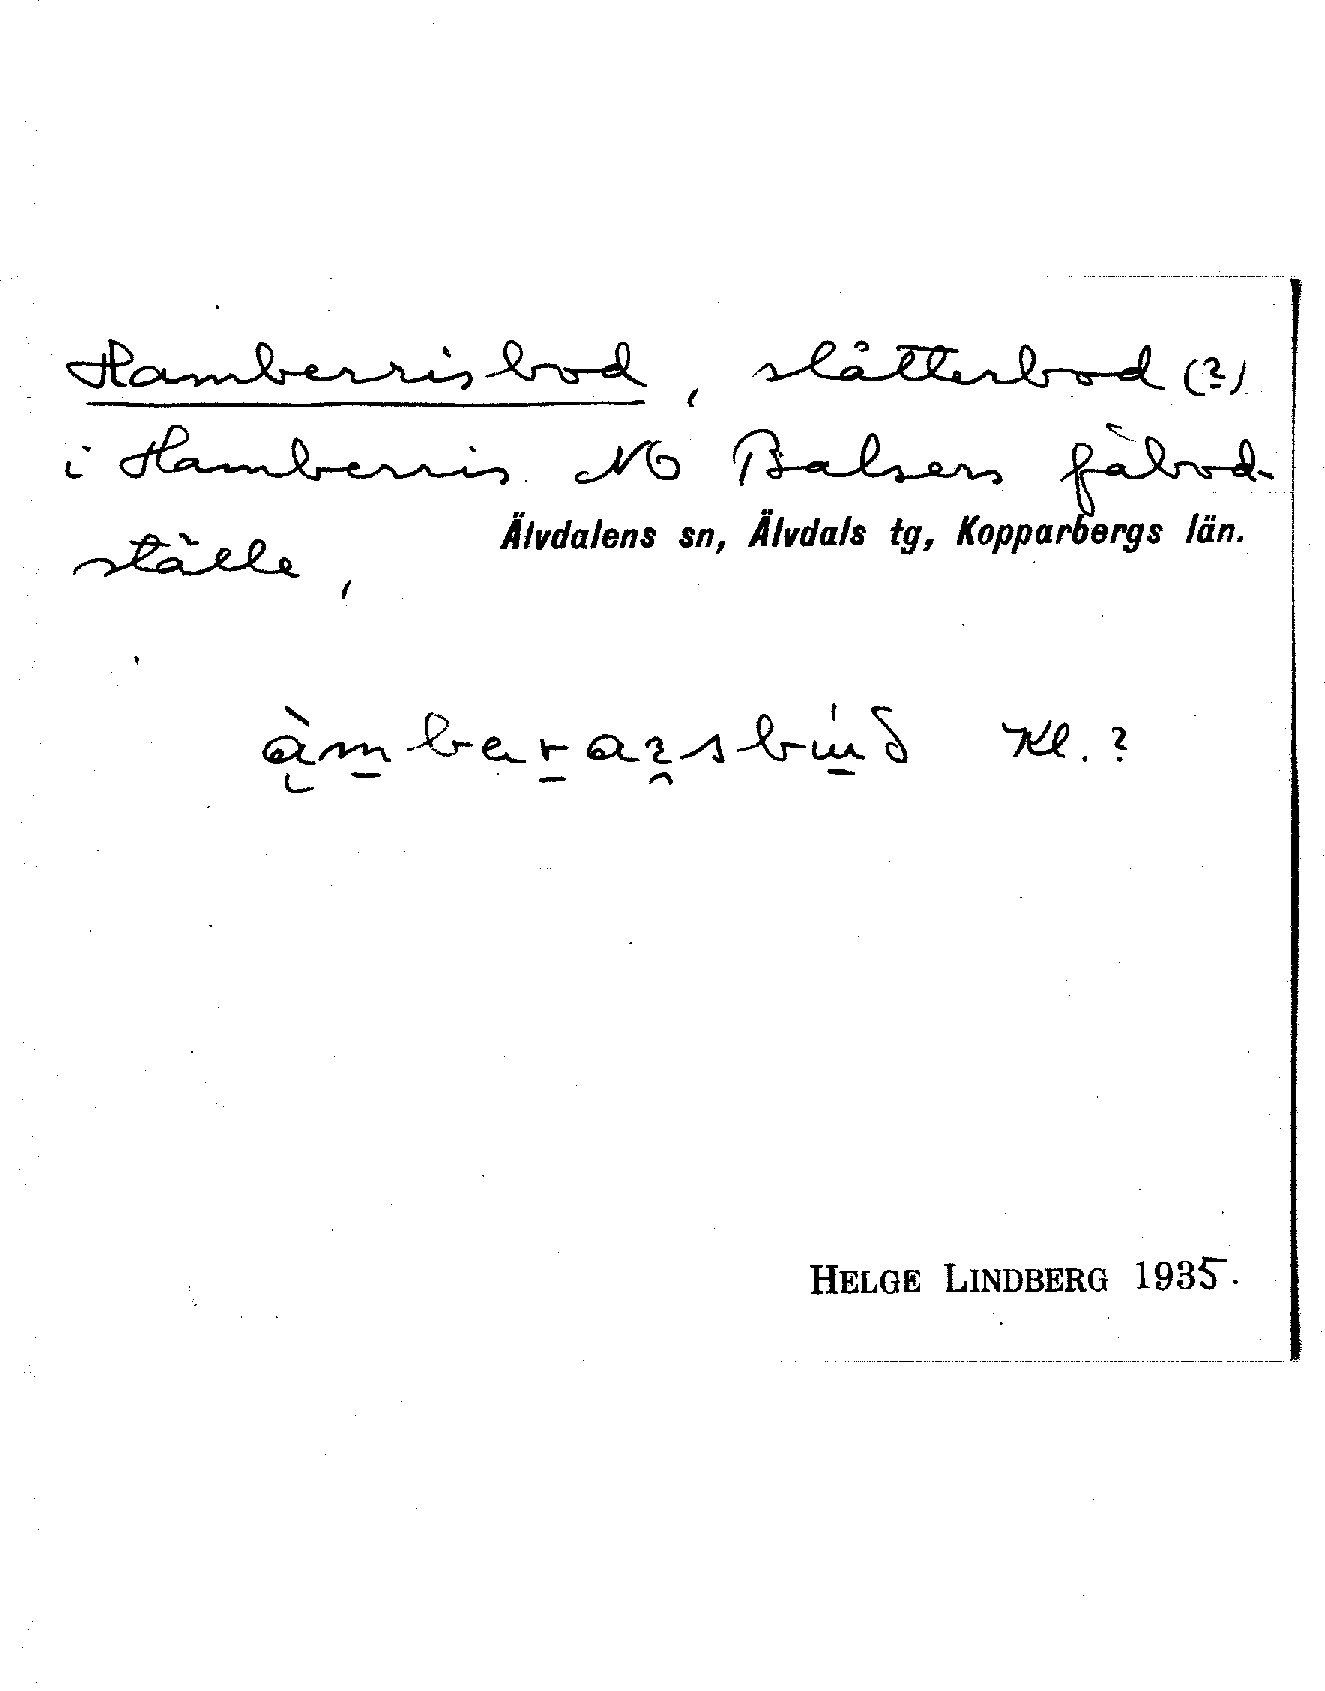 Hamberrisbod, slåtterbod (?)
i Hamberris NO Balsers fäbod-
ställe,
Älvdalens sn, Älvdals tg, Kopparbergs län.
Kl. ?
HELGE LINDBERG 1935.